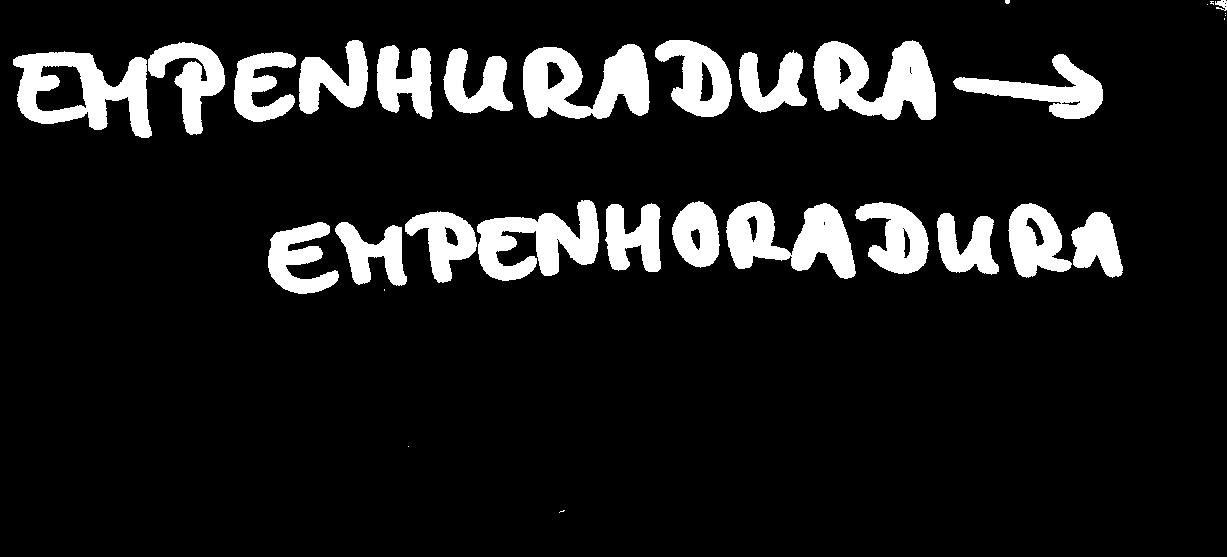 EMPENHURADURA →
EMPENHORADURA